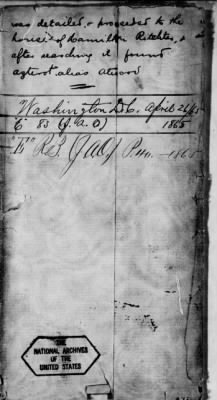 was detailed, & proceeded to the
house of Hamilton Ritchter, &
after searching it found
alias atwood
"Washington D.C. April 26/65
"C" 83 (J.A.O) 1865
"E" R.B. (JAO) P. 1865
THE
NATIONAL ARCHIVES
OF THE
UNITED STATES